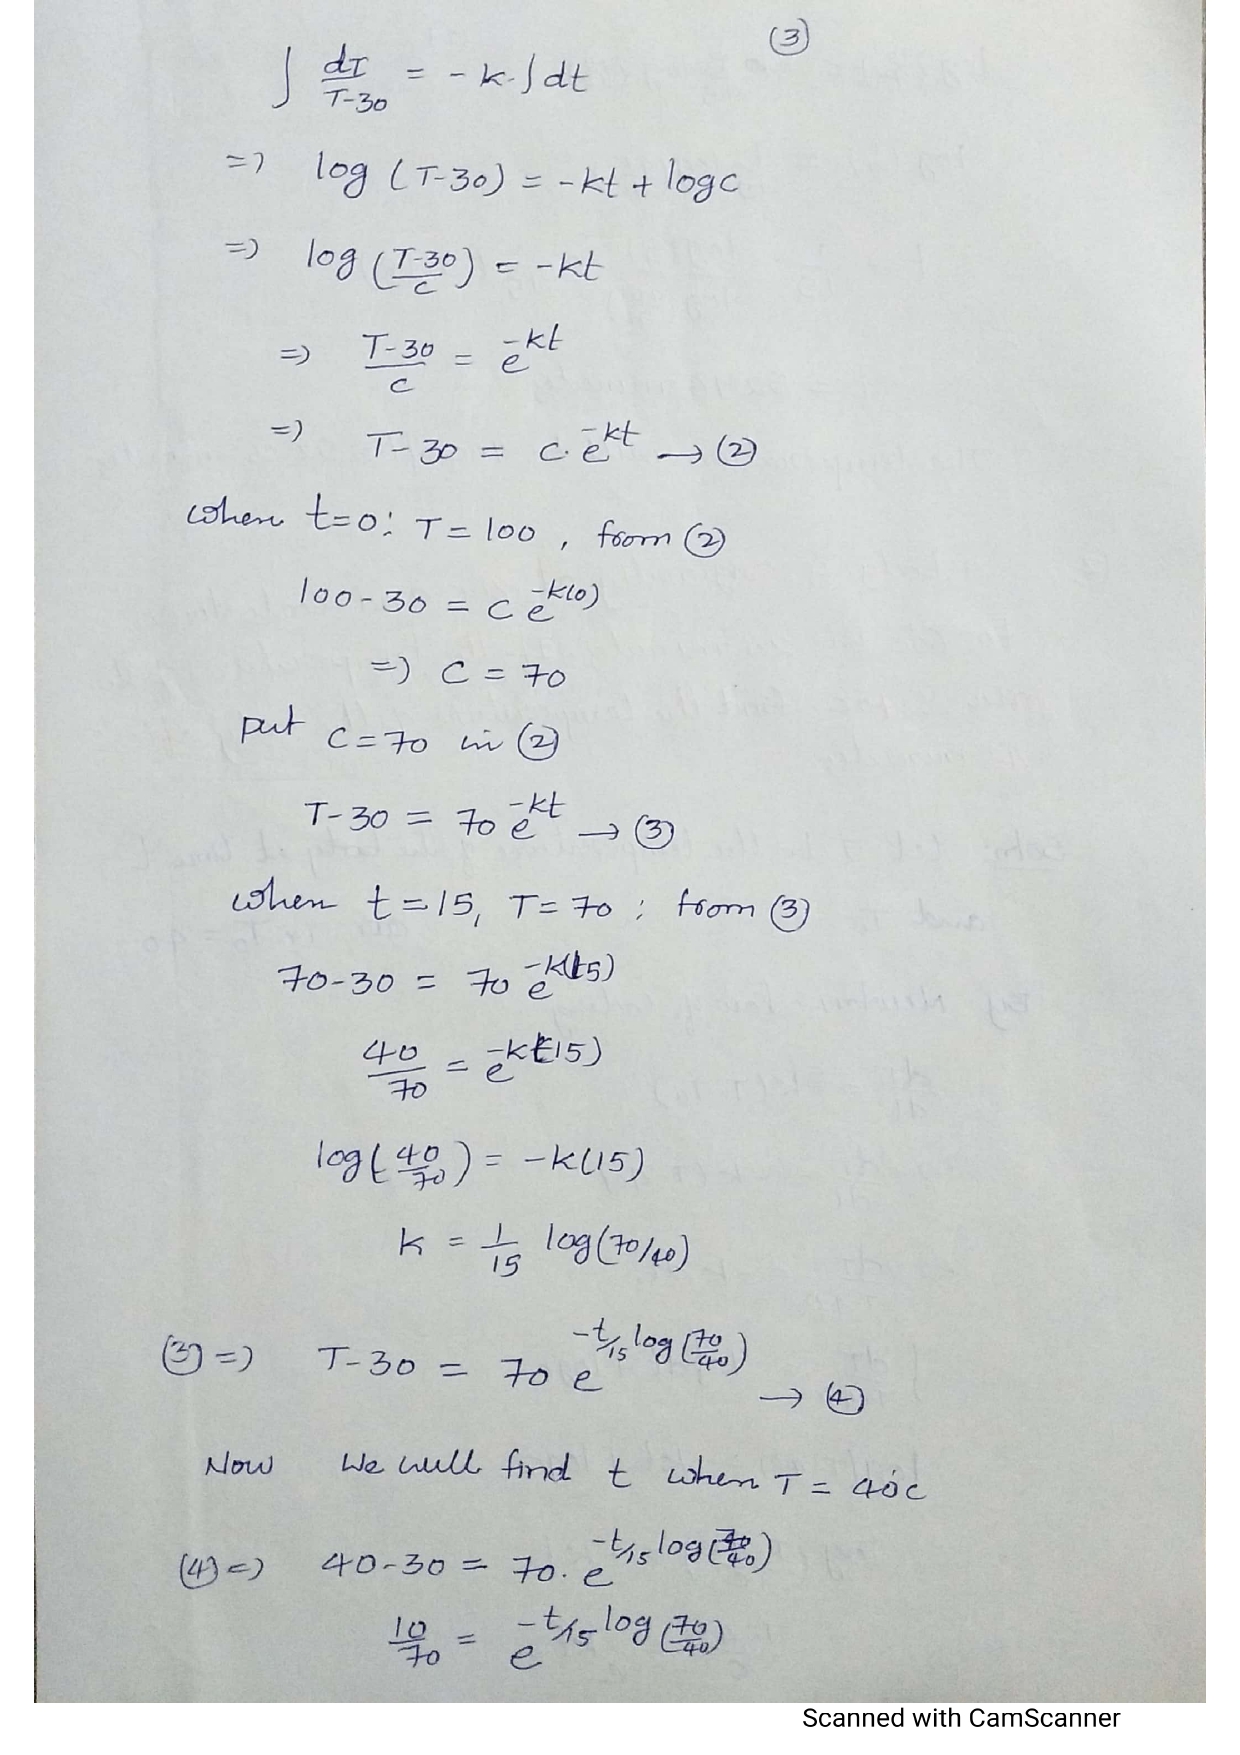 (3)
∫ dT/(T-30) = -k.∫dt
=> log (T-30) = -kt + log c
=> log ((T-30)/c) = -kt
=> (T-30)/c = e^(-kt)
=> T-30 = c.e^(-kt) → (2)
when t=0: T=100, from (2)
100-30 = c e^(-k(0))
=> c = 70
put c=70 in (2)
T-30 = 70 e^(-kt) → (3)
when t=15, T=70; from (3)
70-30 = 70 e^(-k(15))
40/70 = e^(-k(15))
log(40/70) = -k(15)
k = 1/15 log(70/40)
(3) => T-30 = 70 e^(-t/15 log(70/40)) → (4)
Now we will find t when T = 40°c
(4) => 40-30 = 70. e^(-t/15 log(70/40))
10/70 = e^(-t/15 log(70/40))
Scanned with CamScanner